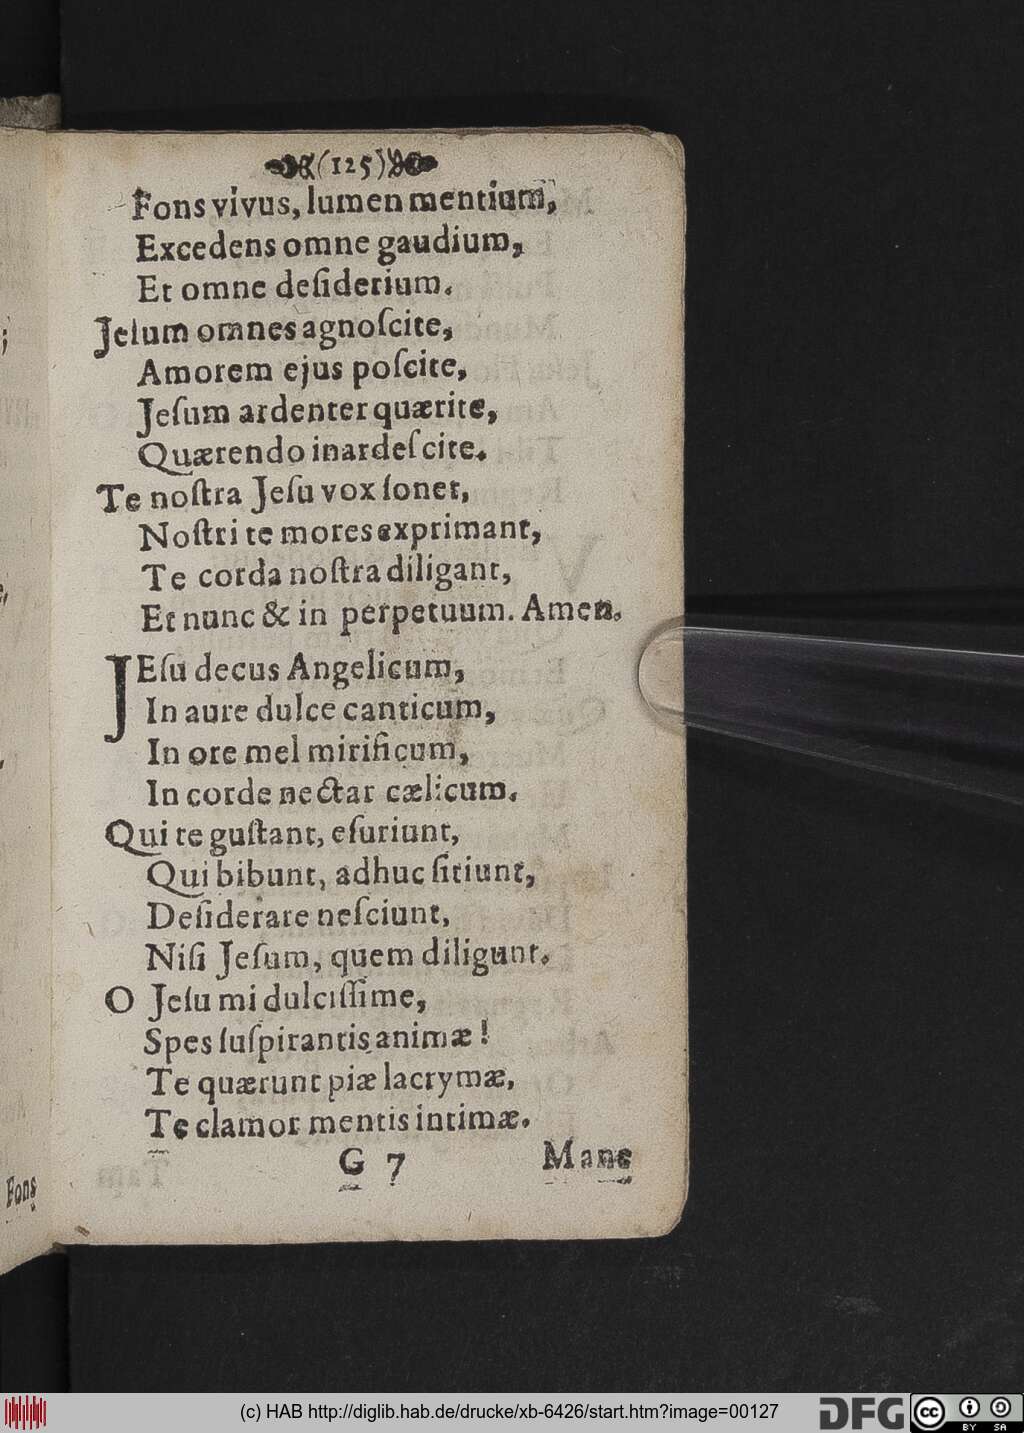 (125)
Fons vivus, lumen mentium,
Excedens omne gaudium,
Et omne deſiderium.
Jeſum omnes agnoſcite,
Amorem ejus poſcite,
Jeſum ardenter quærite,
Quærendo inardeſcite.
Te noſtra Jeſu vox ſonet,
Noſtri te mores exprimant,
Te corda noſtra diligant,
Et nunc & in perpetuum. Amen.
JEſu decus Angelicum,
In aure dulce canticum,
In ore mel mirificum,
In corde nectar cælicum.
Qui te guſtant, eſuriunt,
Qui bibunt, adhuc ſitiunt,
Deſiderare neſciunt,
Niſi Jeſum, quem diligunt.
O Jeſu mi dulciſſime,
Spes ſuſpirantis animæ!
Te quærunt piæ lacrymæ,
Te clamor mentis intimæ.
G 7 Mane
Fons
(c) HAB http://diglib.hab.de/drucke/xb-6426/start.htm?image=00127
DFG
cc BY SA